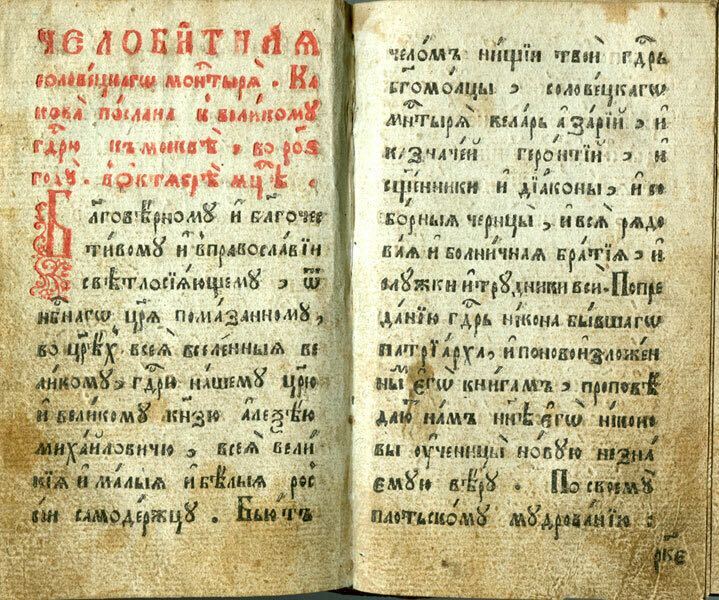 ЧЕЛОБИ́ТНАЯ
соловѣ́цкагѡ мон̑тыря̀ . Ка
кова̀ по́слана к великому
гдⷭ҇рю къ москвѣ̀ , во ро҃ѕ
году̀ . в октѧбрѣ мцⷭ҇ѣ .
Бл҃говѣ́рному и҆ бл҃гочес
ти́вому и҆ в правосла́вїи
свѣтлосїѧ́ющему , ѿ
нбⷭ҇нагѡ цр҃ѧ̀ пома́занному ,
во цр҃ѣ́хъ всеѧ̀ вселе́нныѧ ве
ли́кому , гдⷭ҇рю на́шему цр҃ю
и҆ вели́кому кн҃зю а҆леѯѣ́ю
миха́йловичю , всеѧ̀ вели
кїѧ и҆ ма́лыѧ и҆ бѣ́лыѧ рос
сїи самоде́ржцу . Бью́тъ
чело́мъ ни́щїи твоѝ гдⷭ҇рь
бг҃омо́лцы , солове́цкагѡ
мн̑тырѧ̀ ке́ларь а҆за́рїй , и҆
казначе́й геро́нтїй , и҆
сщ҃е́нники и҆ дїа́коны , и҆ со
бо́рныѧ черицы̀ , и҆ всѧ̀ рѧдо
ва́ѧ и҆ болни́чнаѧ бра́тїѧ , и҆
слу́жки и҆ тру́дники всѝ . По пре
да́нїю гдⷭ҇рь ни́кона бы́вшагѡ
патрїа́рха , и҆ по новоизложе́н
ны́мъ є҆гѡ̀ кни́гамъ , проповѣ́
даю нам нн҃ѣ є҆гѡ̀ ни́коно
вы ѹ҆ченицы̀ но́вую незна́
емую вѣ́ру . По своему̀
пло́тьскому мудрова́нїю :
рк҃є